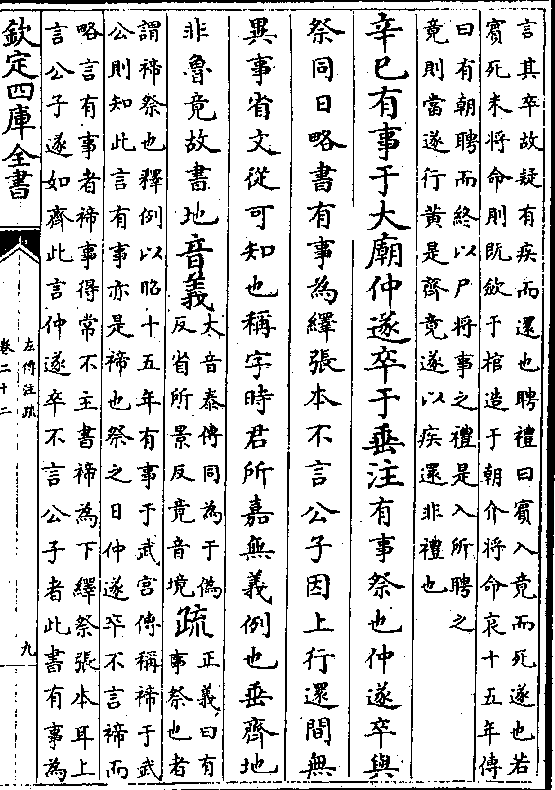 言其卒故疑有疾而還也聘禮曰賓入竟而死遂也若
賓死未將命則既斂于棺造于朝介將命哀十五年傳
曰有朝聘而終以尸將事之禮是入所聘之
竟則當遂行黃是齊竟遂以疾還非禮也
辛巳有事于大廟仲遂卒于垂注有事祭也仲遂卒與
祭同日略書有事為繹張本不言公子因上行還間無
異事省文從可知也稱字時君所嘉無義例也垂齊地
非魯竟故書地音義大音泰傳同為于偽
反省所景反竟音境疏正義曰有
事祭也者
謂禘祭也釋例以昭十五年有事于武宮傳稱禘于武
公則知此言有事亦是禘也祭之日仲遂卒不言禘而
略言有事者禘事得常不主書禘為下繹祭張本耳上
言公子遂如齊此言仲遂卒不言公子者此書有事為
欽定四庫全書
左傳注疏
卷二十二
九